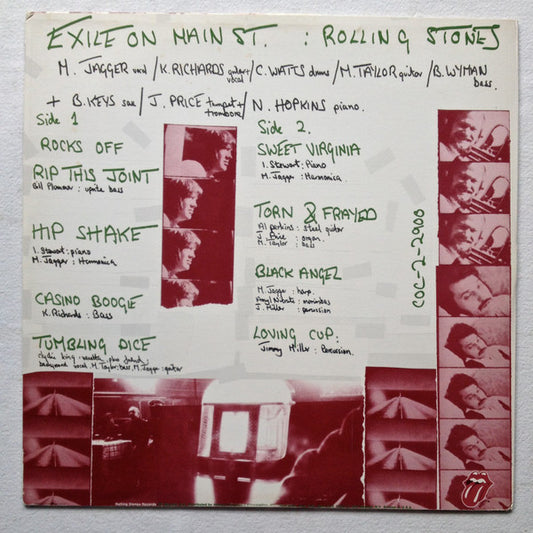 EXILE ON MAIN ST. : ROLLING STONES
M. JAGGER vocal / K. RICHARDS guitar + vocal / C. WATTS drums / M. TAYLOR guitar / B. WYMAN bass.
+ B. KEYS sax / J. PRICE trumpet + trombone / N. HOPKINS piano.
Side 1
ROCKS OFF
RIP THIS JOINT
Bill Plummer : uprite bass
HIP SHAKE
I. Stewart : piano
M. Jagger : Harmonica
CASINO BOOGIE
K. Richards : Bass
TUMBLING DICE
background vocal. M. Taylor : bass. M. Jagger : guitar
Side 2.
SWEET VIRGINIA
I. Stewart : Piano
M. Jagger : Harmonica.
TORN & FRAYED
Al perkins : steel guitar
J. Price : organ.
M. Taylor : bass
BLACK ANGEL
M. Jagger : harp.
: marimbas
J. Miller : percussion
LOVING CUP :
Jimmy Miller : Percussion.
COC-2-2900
Rolling Stones Records